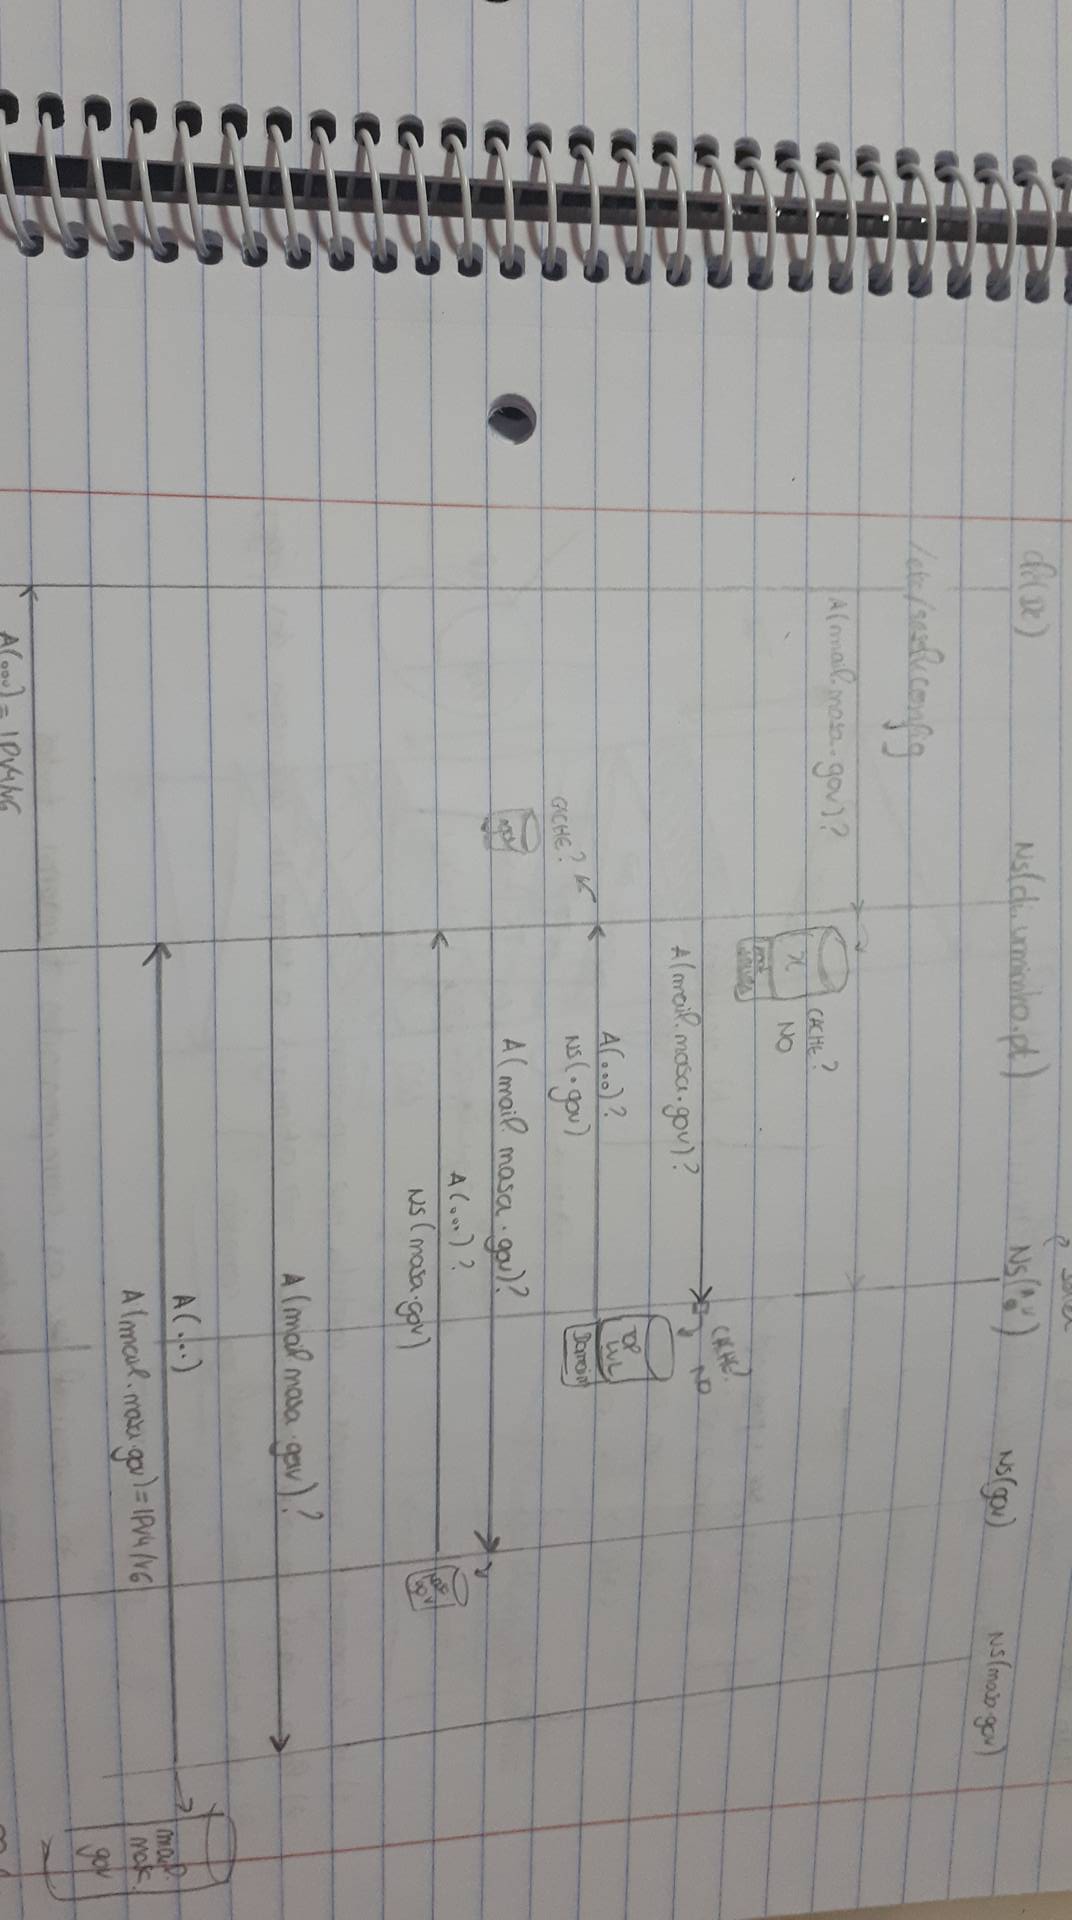 NS(di.uminho.pt)
NS(".")
NS(gov)
NS(masa.gov)
A(mail.masa.gov)?
CACHE?
NO
CACHE?
NO
A(mail.masa.gov)?
TOP
LVL
Domain
A(...)?
NS(.gov)
CACHE?
A(mail.masa.gov)?
A(...)?
NS(masa.gov)
A(mail.masa.gov)?
A(...)
A(mail.masa.gov)=IPV4/V6
mail.
gov
A(...) = IPV4/V6